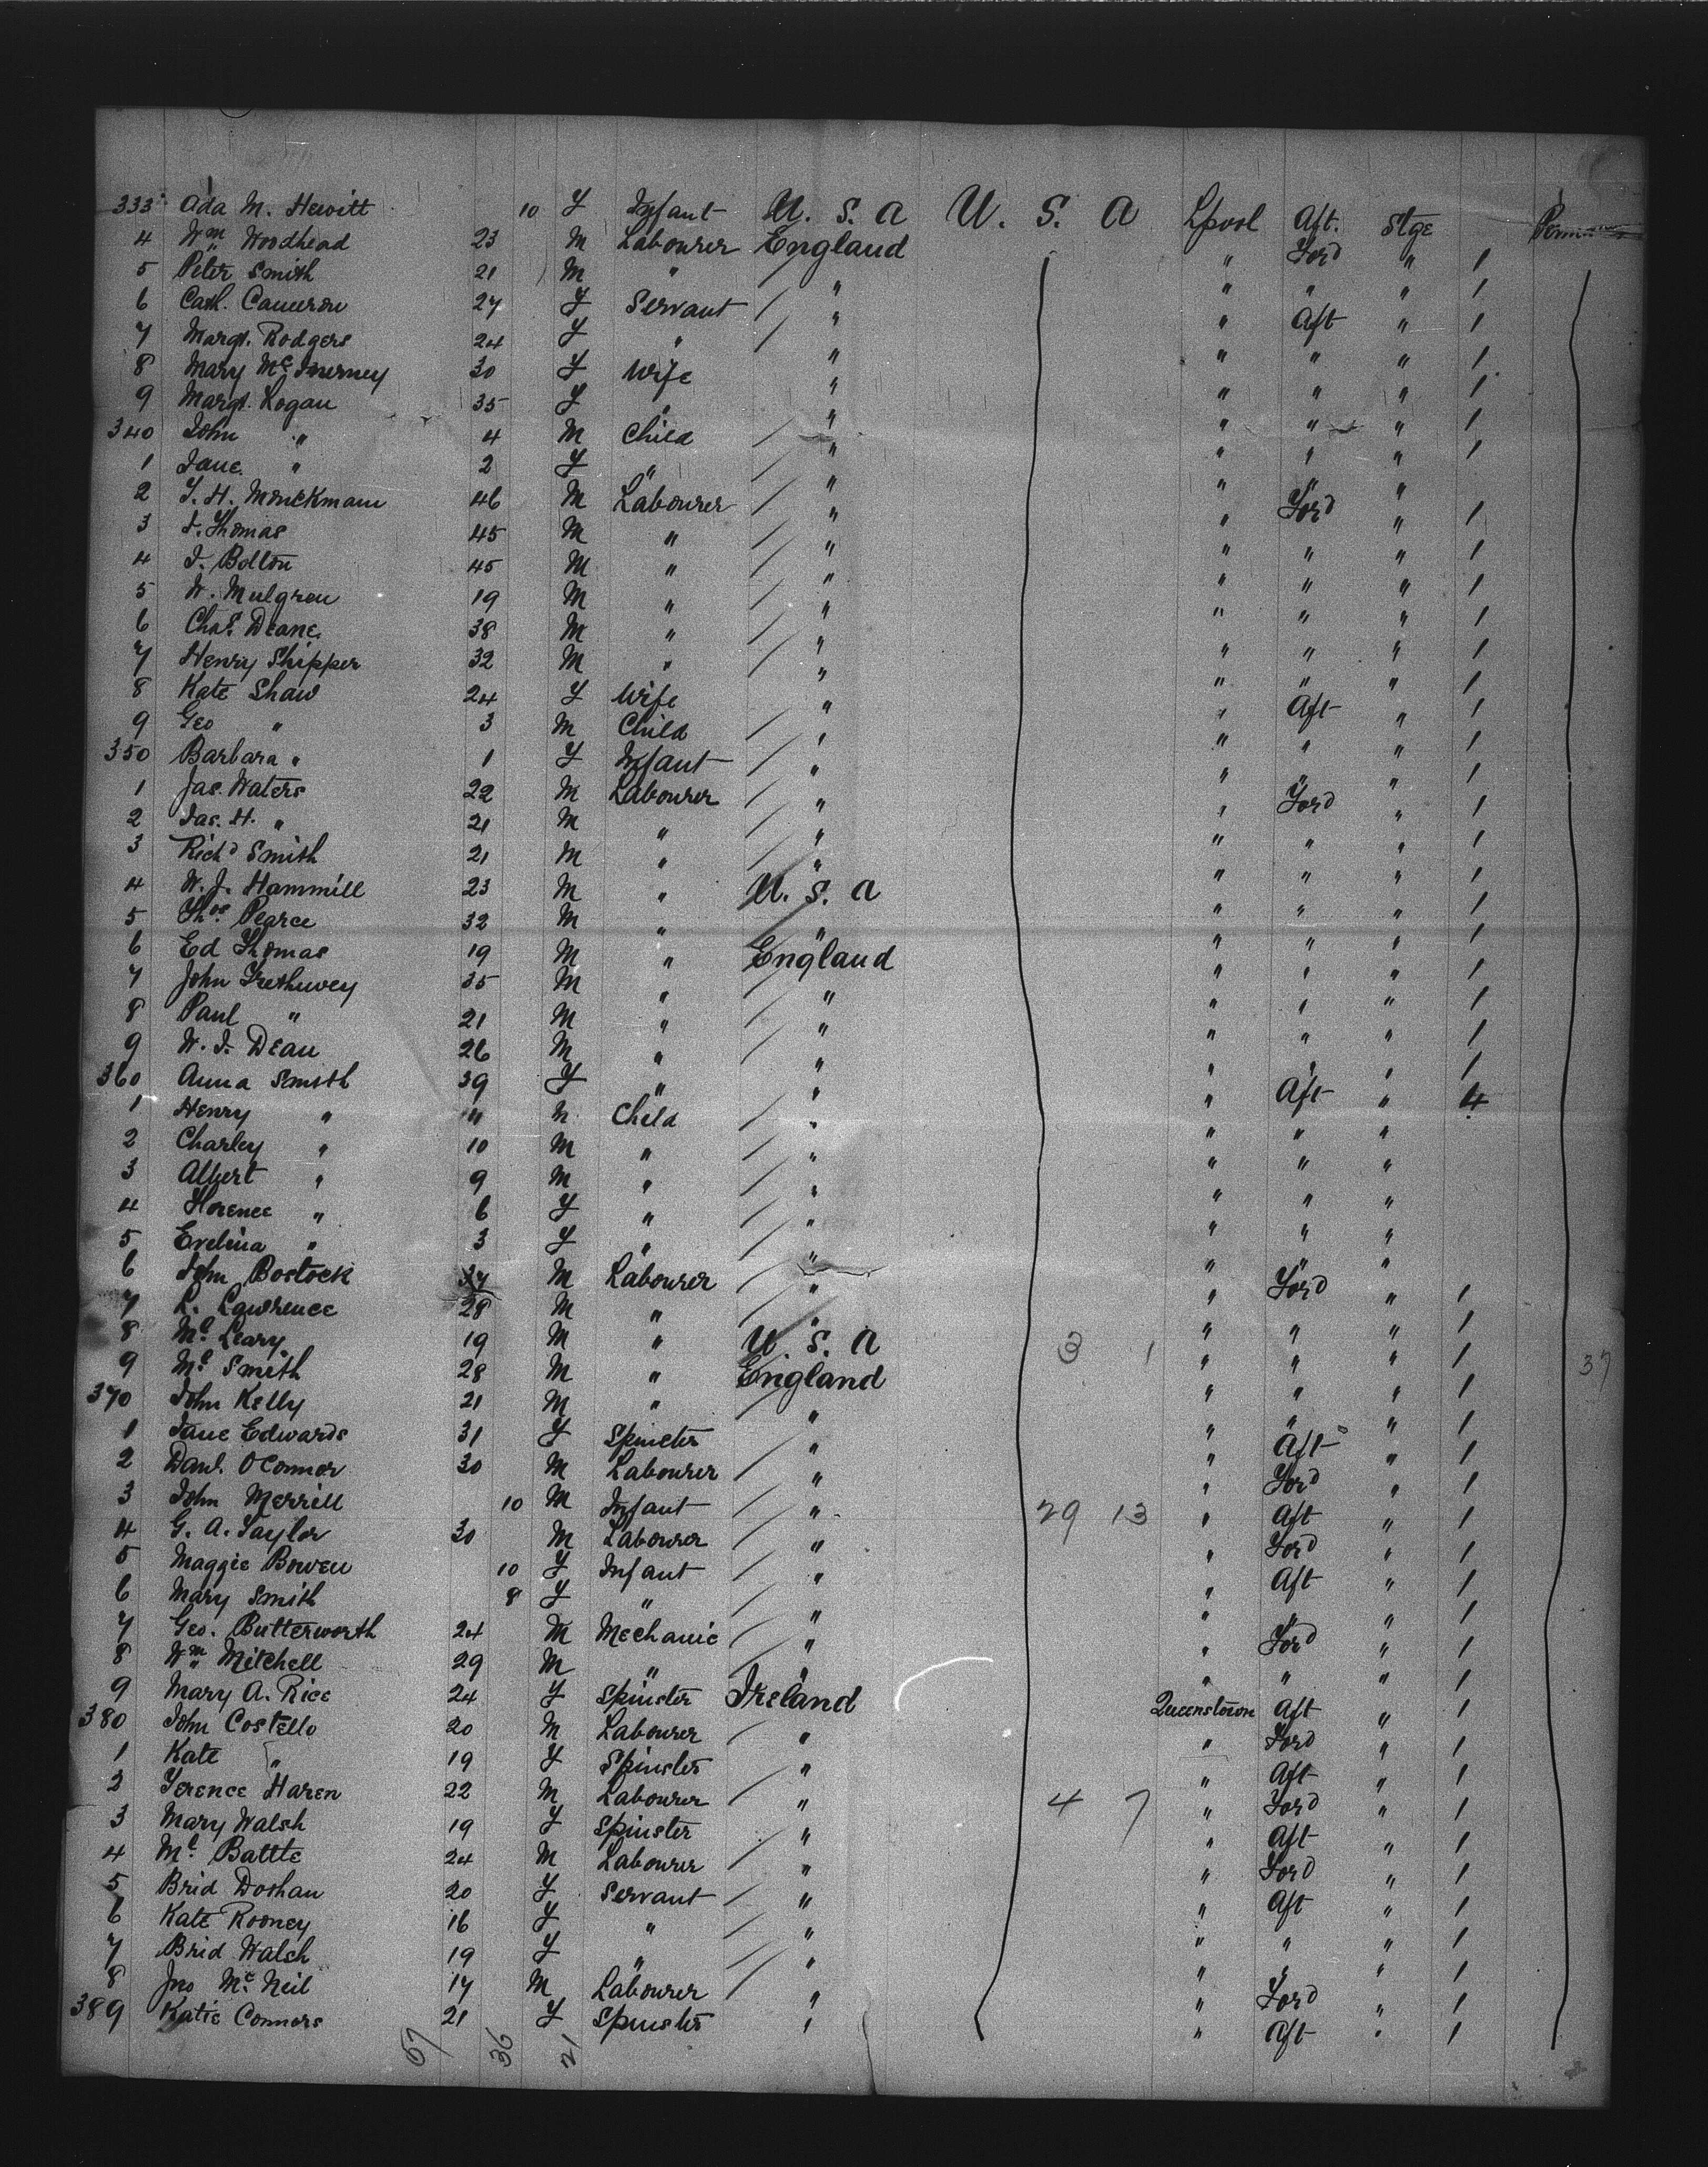 333 Ada M. Hewitt 10 F Infant U. S. A U. S. A Lpool Aft. Stge
4 Wm Woodhead 23 M Labourer England " Ford " 1
5 Peter Smith 21 M " " " " " 1
6 Cath. Cameron 27 F Servant " " Aft " 1
7 Margt. Rodgers 24 F " " " " " 1
8 Mary McInerney 30 F Wife " " " " 1
9 Margt. Logan 35 F " " " " " 1
340 John " 4 M Child " " " " 1
1 Jane " 2 F " " " " "
2 T. H. Monckmam 46 M Labourer " " Ford " 1
3 J. Thomas 45 M " " " " " 1
4 J. Bolton 45 M " " " " " 1
5 W. Mulgrew 19 M " " " " " 1
6 Chas. Deane 38 M " " " " " 1
7 Henry Shipper 32 M " " " " " 1
8 Kate Shaw 24 F Wife " " Aft " 1
9 Geo " 3 M Child " " " " 1
350 Barbara " 1 F Infant " " " " 1
1 Jas. Waters 22 M Labourer " " Ford " 1
2 Jas. H. " 21 M " " " " " 1
3 Richd Smith 21 M " " " " " 1
4 W. J. Hammill 23 M " U. S. A " " " 1
5 Thos. Pearce 32 M " " " " " 1
6 Ed Thomas 19 M " England " " " 1
7 John Trethuvey 35 M " " " " " 1
8 Paul " 21 M " " " " " 1
9 W. J. Dean 26 M " " " " " 1
360 Anna Smith 39 F " " " Aft " 4
1 Henry " 11 M Child " " " "
2 Charley " 10 M " " " " "
3 Albert " 9 M " " " " "
4 Florence " 6 F " " " " "
5 Evelina " 3 F " " " " "
6 John Bostock 37 M Labourer " " Ford " 1
7 L. Lawrence 28 M " " " " " 1
8 Ml. Leary 19 M " U. S. A 3 1 " " " 1
9 Ml. Smith 28 M " England " " " 1 37
370 John Kelly 21 M " " " " " 1
1 Jane Edwards 31 F Spinster " " Aft " 1
2 Danl. OConnor 30 M Labourer " " Ford " 1
3 John Merrill 10 M Infant " 29 13 " Aft " 1
4 G. A. Taylor 30 M Labourer " " Ford " 1
5 Maggie Bowen 10 F Infant " " Aft " 1
6 Mary Smith 8 F " " " " " 1
7 Geo. Butterworth 24 M Mechanic " " Ford " 1
8 Wm Mitchell 29 M " " " " " 1
9 Mary A. Rice 24 F Spinster Ireland Queenstown Aft " 1
380 John Costello 20 M Labourer " " Ford " 1
1 Kate " 19 F Spinster " " Aft " 1
2 Terence Haren 22 M Labourer " 4 7 " Ford " 1
3 Mary Walsh 19 F Spinster " " Aft " 1
4 Ml. Battle 24 M Labourer " " Ford " 1
5 Brid Doohan 20 F Servant " " Aft " 1
6 Kate Rooney 16 F " " " " " 1
7 Brid Walsh 19 F " " " " " 1
8 Jno McNeil 17 M Labourer " " Ford " 1
389 Katie Connors 21 F Spinster " " Aft " 1
57 36 21